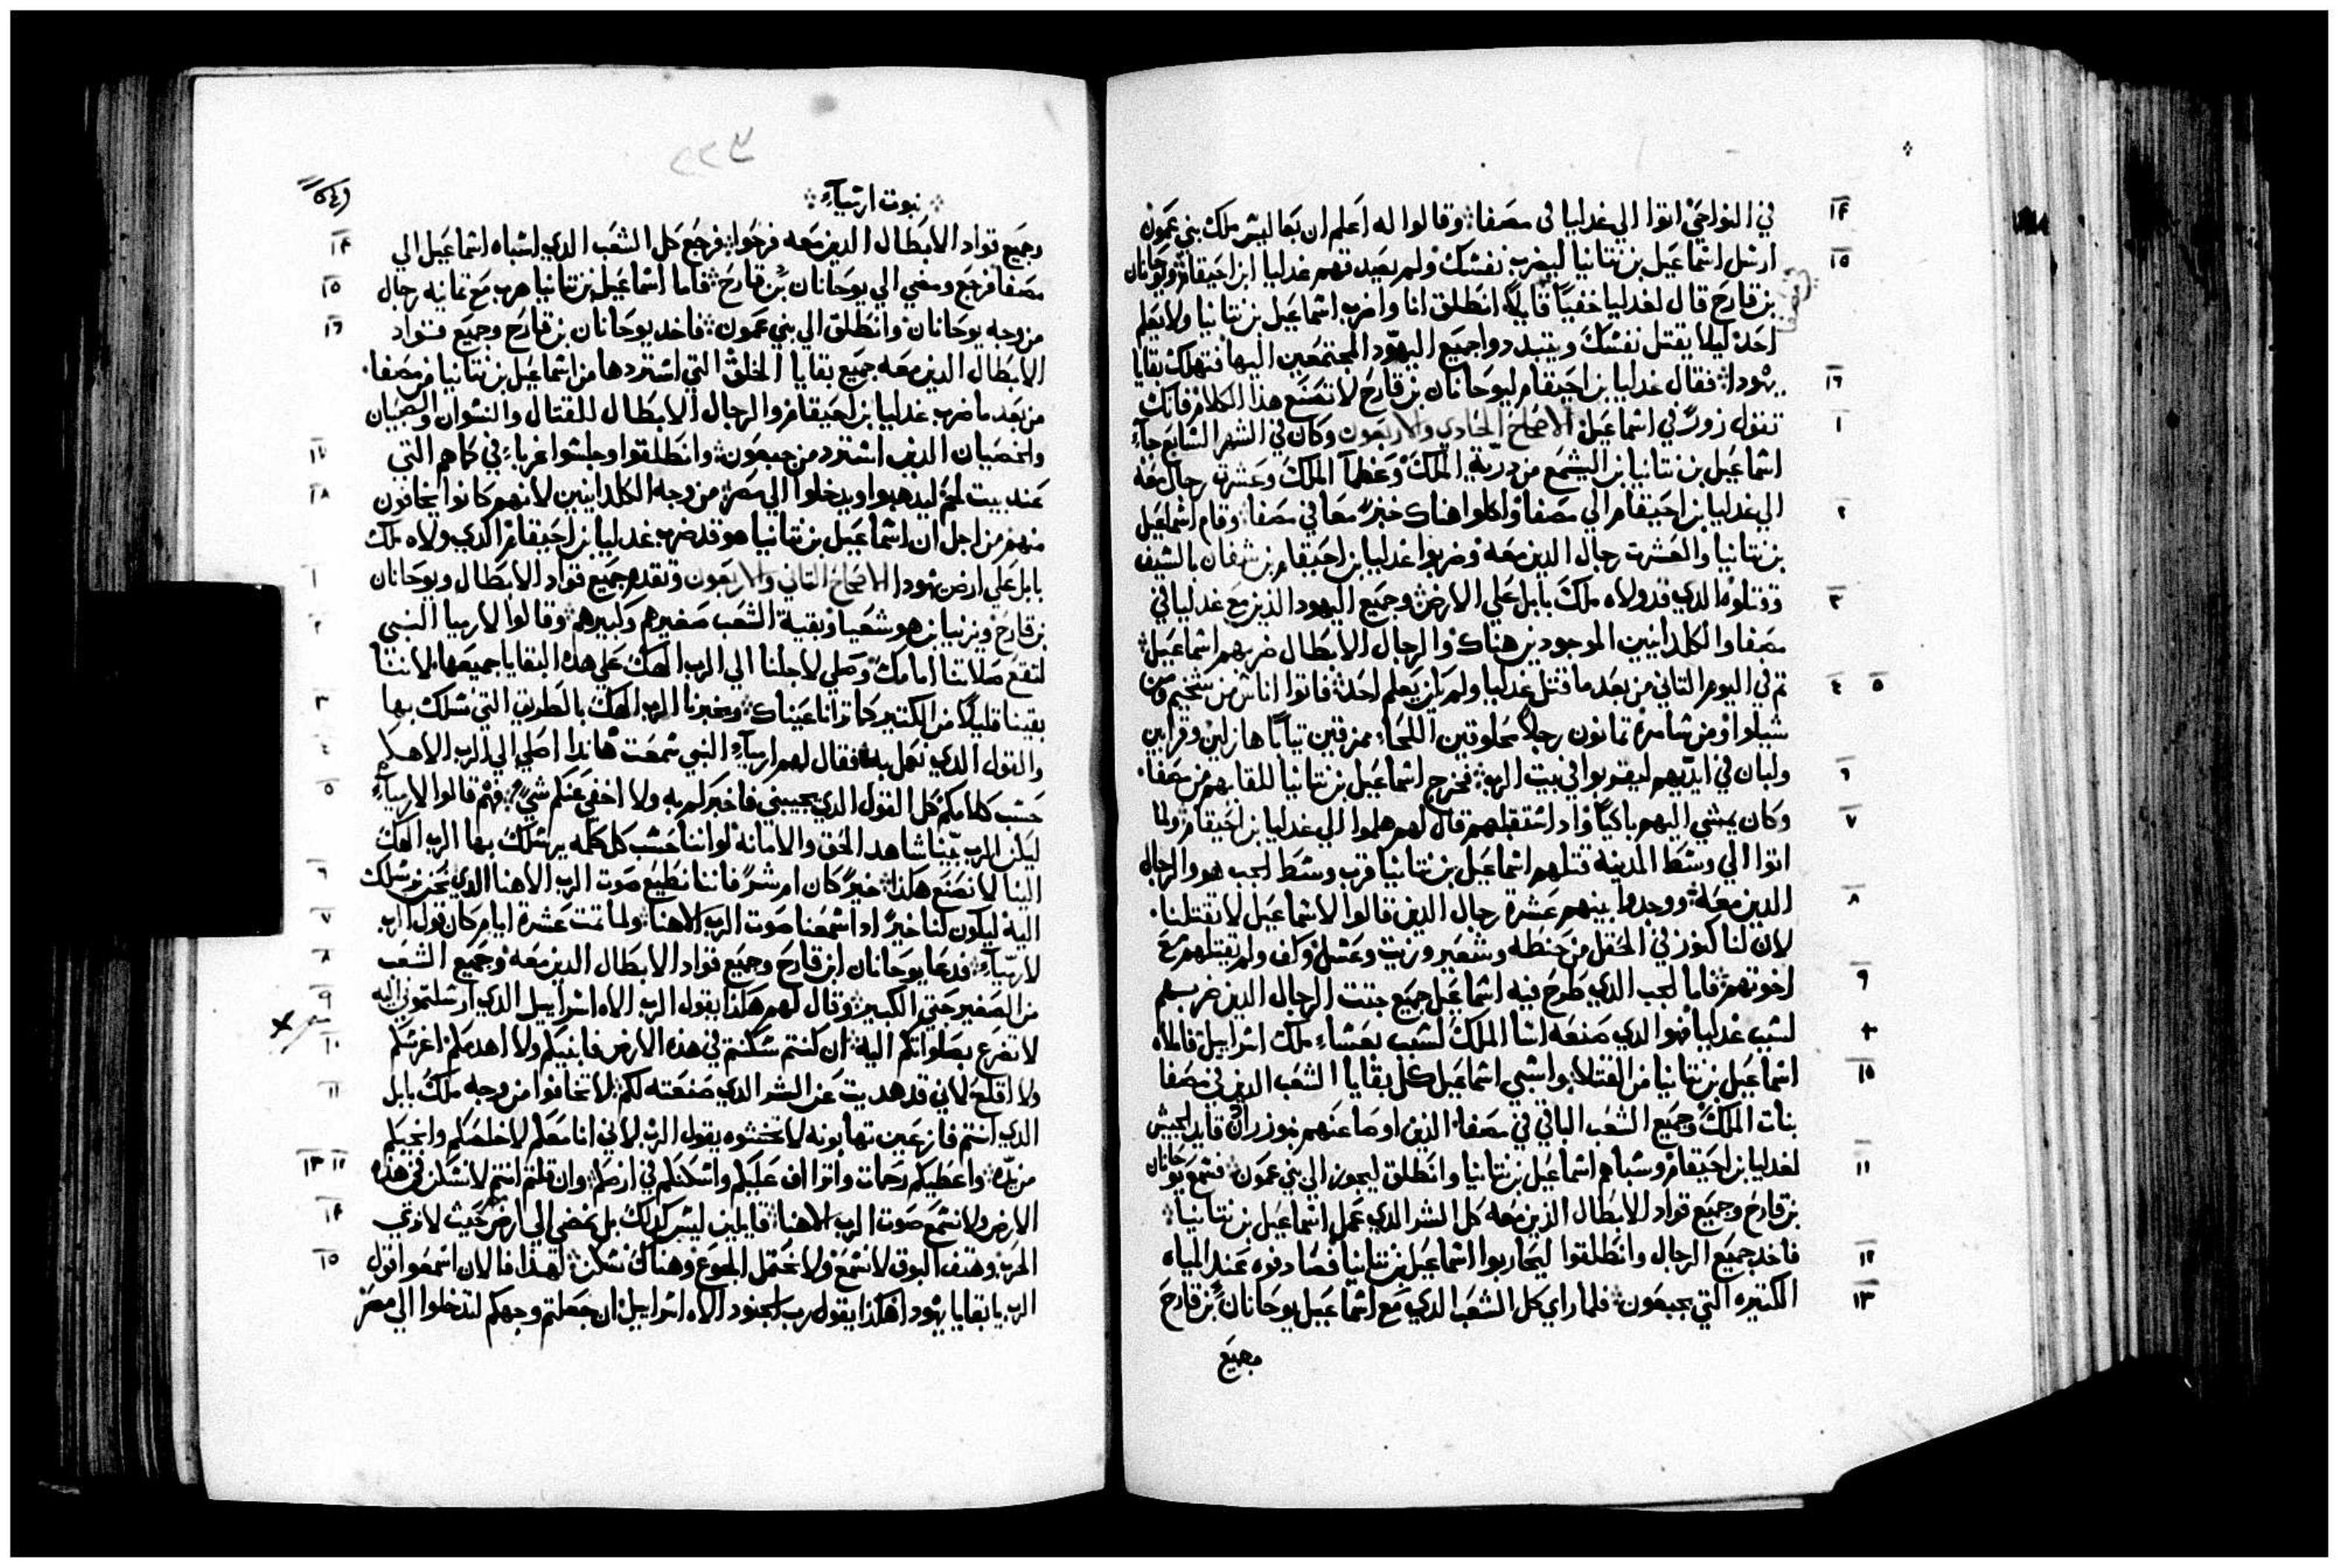 في النواحي اتوا الي غدليا في مصفا وقالوا له اعلم ان بعاليس ملك بني عمون
ارسل اسماعيل بن نتانيا ليضرب نفسك ولم يصدقهم غدليا ابن احيقام ويوحانان
بن قارح قال لغدليا خفيًا قايلاً انطلق انا واضرب اسماعيل بن نتانيا ولا يعلم
احد ليلا يقتل نفسك ويتبددوا جميع اليهود المجتمعين اليها فتهلك بقايا
يهودا فقال غدليا بن احيقام ليوحانان بن قارح لا تصنع هذا الكلام فانك
تقول زورً في اسماعيل الاصحاح الحادي والاربعون وكان في الشهر السابع جآء
اسماعيل بن نتانيا بن اليشمع من درية الملك وعظما الملك وعشرة رجال معه
الي غدليا بن احيقام الي مصفا واكلوا هناك خبزً معًا في مصفا وقام اسماعيل
بن نتانيا والعشرت رجال الدين معه وضربوا غدليا بن احيقام بن شفان بالسيف
وقتلوه الدي قد ولاه ملك بابل علي الارض وجميع اليهود الدين مع غدليا في
مصفا والكلدانيين الموجودين هناك والرجال الابطال ضربهم اسماعيل
تم في اليوم التاني من بعد ما قتل غدليا ولم يعلم احد فاتوا اناس من شخيم ومن
شيلوا ومن شامرة تمانون رجلاً محلوقين اللحاء ممزقين تيابًا هازلين وقرابين
ولبان في ايديهم ليقربوا في بيت الرب فخرج اسماعيل بن نتانيا للقايهم من مصفا
وكان يمشي اليهم باكيًا واد استقبلهم قال لهم هلموا الي غدليا بن احيقام ولما
اتوا الي وسط المدينه قتلهم اسماعيل بن نتانيا قرب وسط الجب هو والرجال
الدين معه ووجدوا بينهم عشرة رجال الدين قالوا لاسماعيل لا تقتلنا
لان لنا كنوز في الحقل من حنطه وشعير وزيت وعسل وكف ولم يقتلهم مع
اخوتهم فاما الجب الدي طرح فيه اسماعيل جميع جتت الرجال الدين ضربهم
لسبب غدليا فهو الدي صنعه اسا الملك لسبب بعشاء ملك اسراييل فاملاه
اسماعيل بن نتانيا من القتلا وسبي اسماعيل كل بقايا الشعب الدين في مصفا
بنات الملك وجميع الشعب الباقي في مصفا الدين اوصا عنهم نبوزردان قايد الجيش
لغدليا بن احيقام وسباهم اسماعيل بن نتانيا وانطلق ليجوز الي بني عمون فسمع يوحانان
بن قارح وجميع قواد الابطال الدين معه كل الشر الدي عمل اسماعيل بن نتانيا
فاخد جميع الرجال وانطلقوا ليحاربوا اسماعيل بن نتانيا فصادفوه عند المياه
الكتيره التي بجبعون فلما راي كل الشعب الدي مع اسماعيل يوحانان بن قارح
وجميع
٢٢٣
نبوت ارميآء
وجميع قواد الابطال الدين معه فرحوا فرجع كل الشعب الدي اسباه اسماعيل الي
مصفا فرجع ومضي الي يوحانان بن قارح فاما اسماعيل بن نتانيا هرب مع تمانيه رجال
من وجه يوحانان وانطلق الي بني عمون فاخد يوحانان بن قارح وجميع قواد
الابطال الدين معه جميع بقايا الخلق التي استردها من اسماعيل بن نتانيا من مصفا
من بعد ما ضرب غدليا بن احيقام والرجال الابطال للقتال والنسوان والصبيان
والخصيان الدين استرد من جبعون وانطلقوا وجلسوا غرباء في كماهم التي
عند بيت لحم ليدهبوا ويدخلوا الي مصر من وجه الكلدانيين لانهم كانوا يخافون
منهم من اجل ان اسماعيل بن نتانيا هو قد ضرب غدليا بن احيقام الدي ولاه ملك
بابل علي ارض يهودا الاصحاح التاني والاربعون وتقدم جميع قواد الابطال ويوحانان
بن قارح ويزنيا بن هوشعيا وبقية الشعب صغيرهم وكبيرهم وقالوا لارميا النبي
لتقع صلاتنا امامك وصلي لاجلنا الي الرب الهك علي هده البقايا جميعها لاننا
بقينا قليلاً من الكتير كما ترانا عيناك ويخبرنا الرب الهك بالطريق التي نسلك بها
والقول الدي نعمل به فقال لهم ارميآء النبي سمعت هاندا اصلي الي الرب الاهكم
حسب كلامكم كل القول الدي يجيبني فاخبركم به ولا اخفي عنكم شي فهم قالوا لارميآء
ليكن الرب بيننا شاهد الحق والامانه لو اننا حسب كل كلمه يرسلك بها الرب الهك
الينا لا نصنع هكدا خيرً كان ام شرً فاننا نطيع صوت الرب الاهنا الدي نحن نرسلك
اليه ليكون لنا خيرً ادا سمعنا صوت الرب الاهنا ولما تمت عشرة ايام كان قول الرب
لارميآء فدعا يوحانان ابن قارح وجميع قواد الابطال الدين معه وجميع الشعب
من الصغير حتي الكبير وقال لهم هكدا يقول الرب الاه اسراييل الدي ارسلتموني اليه
لاتضرع بصلواتكم اليه ان كنتم سكنتم في هده الارض فابنيكم ولا اهدمكم اغرسكم
ولا اقلع لاني قد هديت عن الشر الدي صنعته لكم لا تخافوا من وجه ملك بابل
الدي انتم فازعين تهابونه لا تخشوه يقول الرب لاني انا معكم لاخلصكم وانجيكم
من يده واعطيكم رحمات واتراف عليكم واسكنكم في ارضكم وان قلتم انتم لا نسكن في هده
الارض ولا نسمع صوت الرب الاهنا قايلين ليس كدلك بل نمضي الي ارض مصر حيث لا نري
الحرب وهتف البوق لا نسمع ولا نحتمل الجوع وهناك نسكن لهدا فالان اسمعوا قول
الرب يا بقايا يهودا هكدا يقول رب الجنود الاه اسراييل ان جعلتم وجهكم لتدخلوا الي مصر